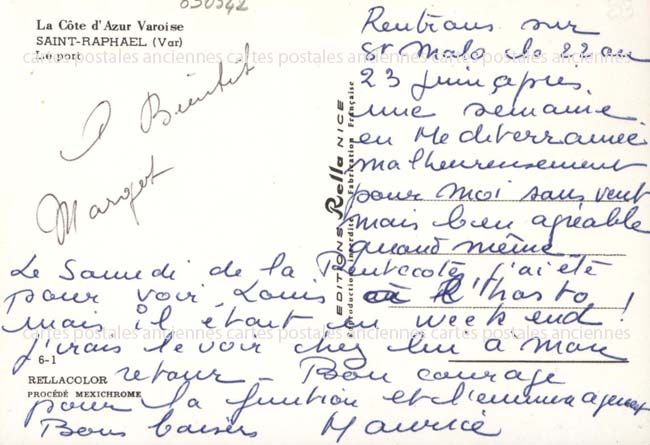 030542
La Côte d'Azur Varoise
SAINT-RAPHAEL (Var)
Le port
A Bientôt
Margot
Rentrons sur
St Malo le 22 au
23 juin après
une semaine
en Mediterrannée
malheureusement
pour moi sans vent
mais bien agréable
quand même
Le Samedi de la Pentecote j'ai été
pour voir Louis à l'hosto !
mais il était en week end !
j'irais le voir chez lui a mon
retour _ Bon courage
pour la finition et l'emmenagemt
Bons baisers Maurice
EDITIONS Rella NICE
Reproduction interdite Fabrication Française
6-1
RELLACOLOR
PROCÉDÉ MEXICHROME
cartes postales anciennes cartes postales anciennes cartes postales anciennes